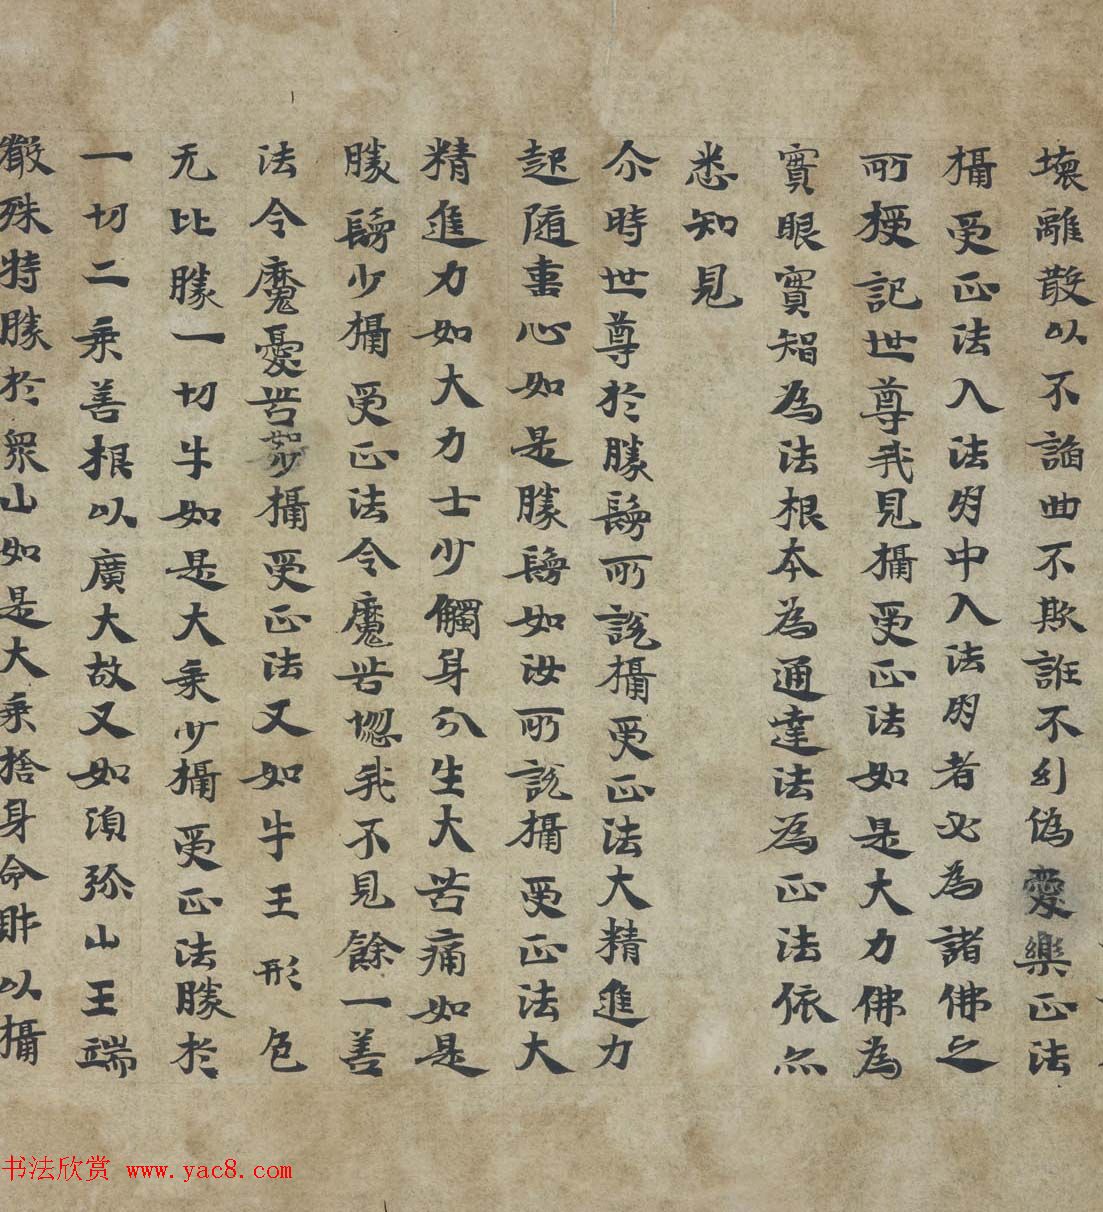 壞離散以不諂曲不欺誑不幻偽愛樂正法
攝受正法入法明中入法明者必為諸佛之
所授記世尊我見攝受正法如是大力佛為
實眼實智為法根本為通達法為正法依亦
悉知見
尒時世尊於勝鬘所說攝受正法大精進力
起隨喜心如是勝鬘如汝所說攝受正法大
精進力如大力士少觸身分生大苦痛如是
勝鬘少攝受正法令魔苦惱我不見餘一善
法令魔憂苦如少攝受正法又如牛王形色
无比勝一切牛如是大乘少攝受正法勝於
一切二乘善根以廣大故又如須弥山王端
嚴殊特勝於衆山如是大乘捨身命財以攝
书法欣赏 www.yac8.com